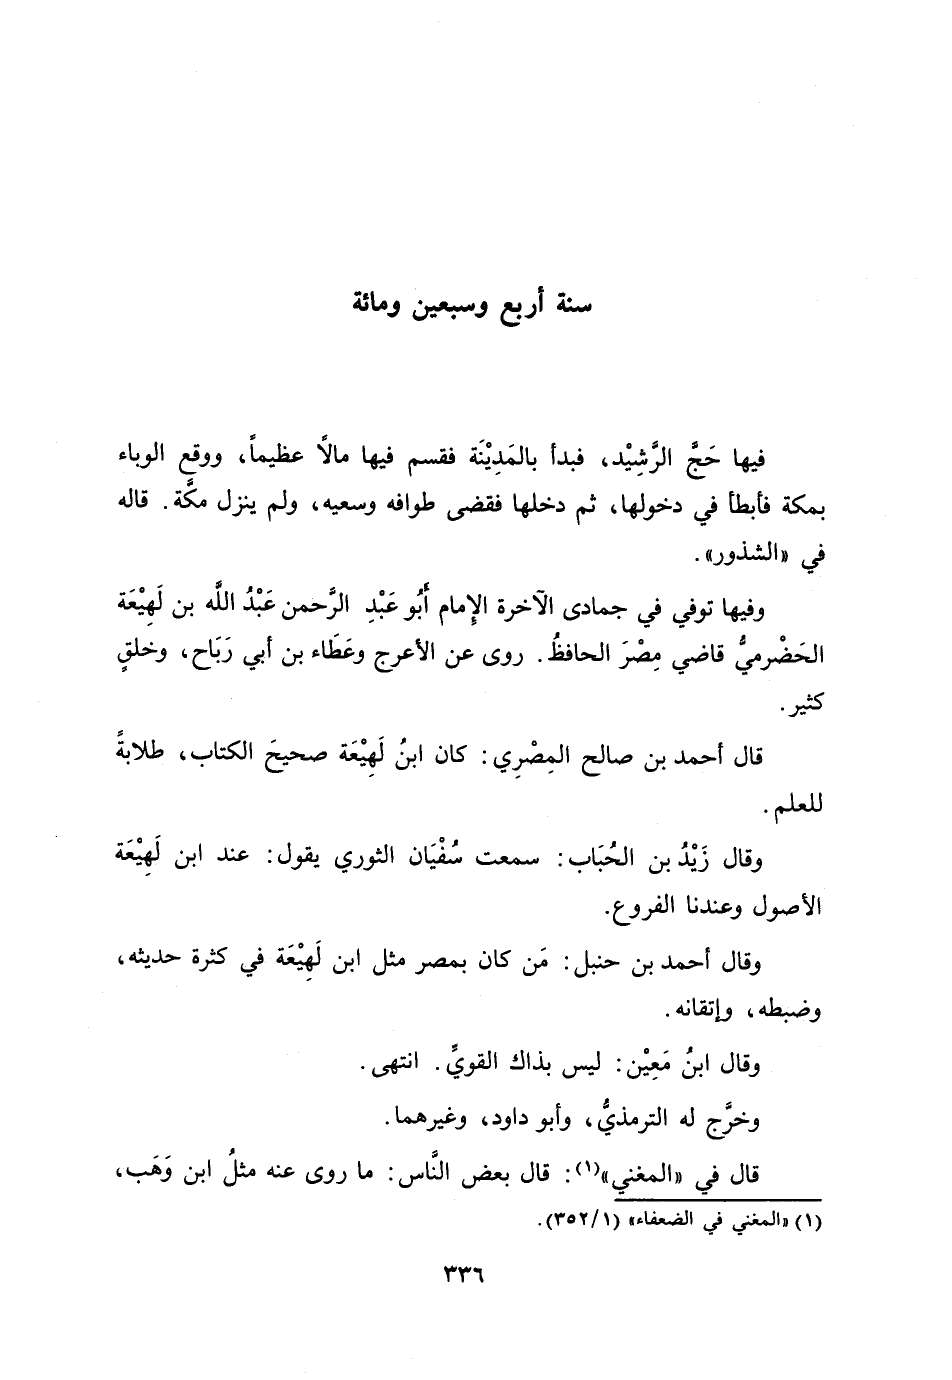 سنة أربع وسبعين ومائة
فيها حَجَّ الرَّشِيْد، فبدأ بالمَدِيْنَة فقسم فيها مالاً عظيماً، ووقع الوباء
بمكة فأبطأ في دخولها، ثم دخلها فقضى طوافه وسعيه، ولم ينزل مكَّة. قاله
في «الشذور».
وفيها توفي في جمادى الآخرة الإِمام أَبُو عَبْدِ الرَّحمن عَبْدُ اللَّه بن لَهِيْعَة
الحَضْرميُّ قاضي مِصْرَ الحافظُ. روى عن الأعرج وعَطَاء بن أبي رَبَاح، وخلقٍ
كثير.
قال أحمد بن صالح المِصْرِي: كان ابنُ لَهِيْعَة صحيحَ الكتاب، طلابةً
للعلم.
وقال زَيْدُ بن الحُبَاب: سمعت سُفْيَان الثوري يقول: عند ابن لَهِيْعَة
الأصول وعندنا الفروع.
وقال أحمد بن حنبل: مَن كان بمصر مثل ابن لَهِيْعَة في كثرة حديثه،
وضبطه، وإتقانه.
وقال ابنُ مَعِيْن: ليس بذاك القويِّ. انتهى.
وخرَّج له الترمذيُّ، وأبو داود، وغيرهما.
قال في «المغني»(١): قال بعض النَّاس: ما روى عنه مثلُ ابن وَهَب،
(١) «المغني في الضعفاء» (٣٥٢/١).
٣٣٦